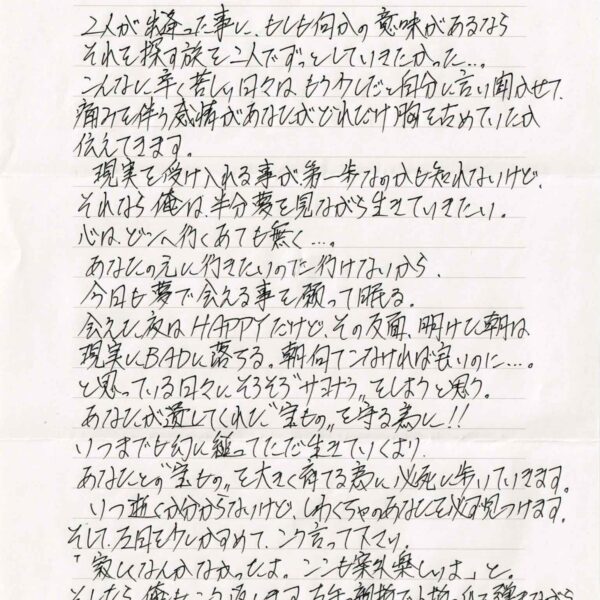 2人が出逢った事に、もしも何かの意味があるなら
それを探す旅を二人でずっとしていきたかった…。
こんなに辛く苦しい日々は、もう少しだと自分に言い聞かせて、
痛みを伴う感情があなたがどれだけ胸を占めていたか
伝えてきます。
現実を受け入れる事が、第一歩なのかも知れないけど、
それなら俺は、半分夢を見ながら生きていきたい。
心は、どこへ行くあても無く…。
あなたの元に行きたいのに行けないから、
今日も夢で会える事を願って眠る。
会えた夜はHAPPYだけど、その反面、明けた朝は
現実にBADに落ちる。朝何てこなければ良いのに…。
と思っている日々にそろそろ"サヨナラ"をしようと思う。
あなたが遺してくれた"宝もの"を守る為に!!
いつまでも幻に縋ってただ生きていくより、
あなたとの"宝もの"を大きく育てる為に必死に歩いていきます。
いつ逝くか分からないけど、しわくちゃのあなたを必ず見つけます。
そして、左目を少しかすめて、こう言って下さい。
「寂しくなんかなかったよ。ここも案外楽しいよ」と。
そしたら俺も